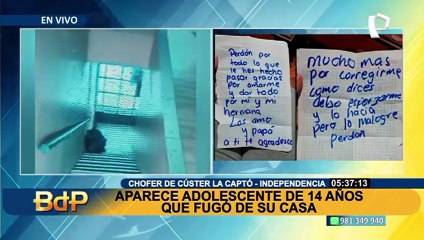 EN VIVO
Perdón por
todo lo que
le he hecho
pasar gracias
por amarme
y dar todo
por mí y mi
hermana
Los amo
y papá
a ti te agradesco
mucho mas
por corregirme
como dices
debo esforzarme
y lo hacía
pero lo malogre
Perdón
CHOFER DE CÚSTER LA CAPTÓ - INDEPENDENCIA
05:37:13
BDP
APARECE ADOLESCENTE DE 14 AÑOS
QUE FUGÓ DE SU CASA
981 349 940